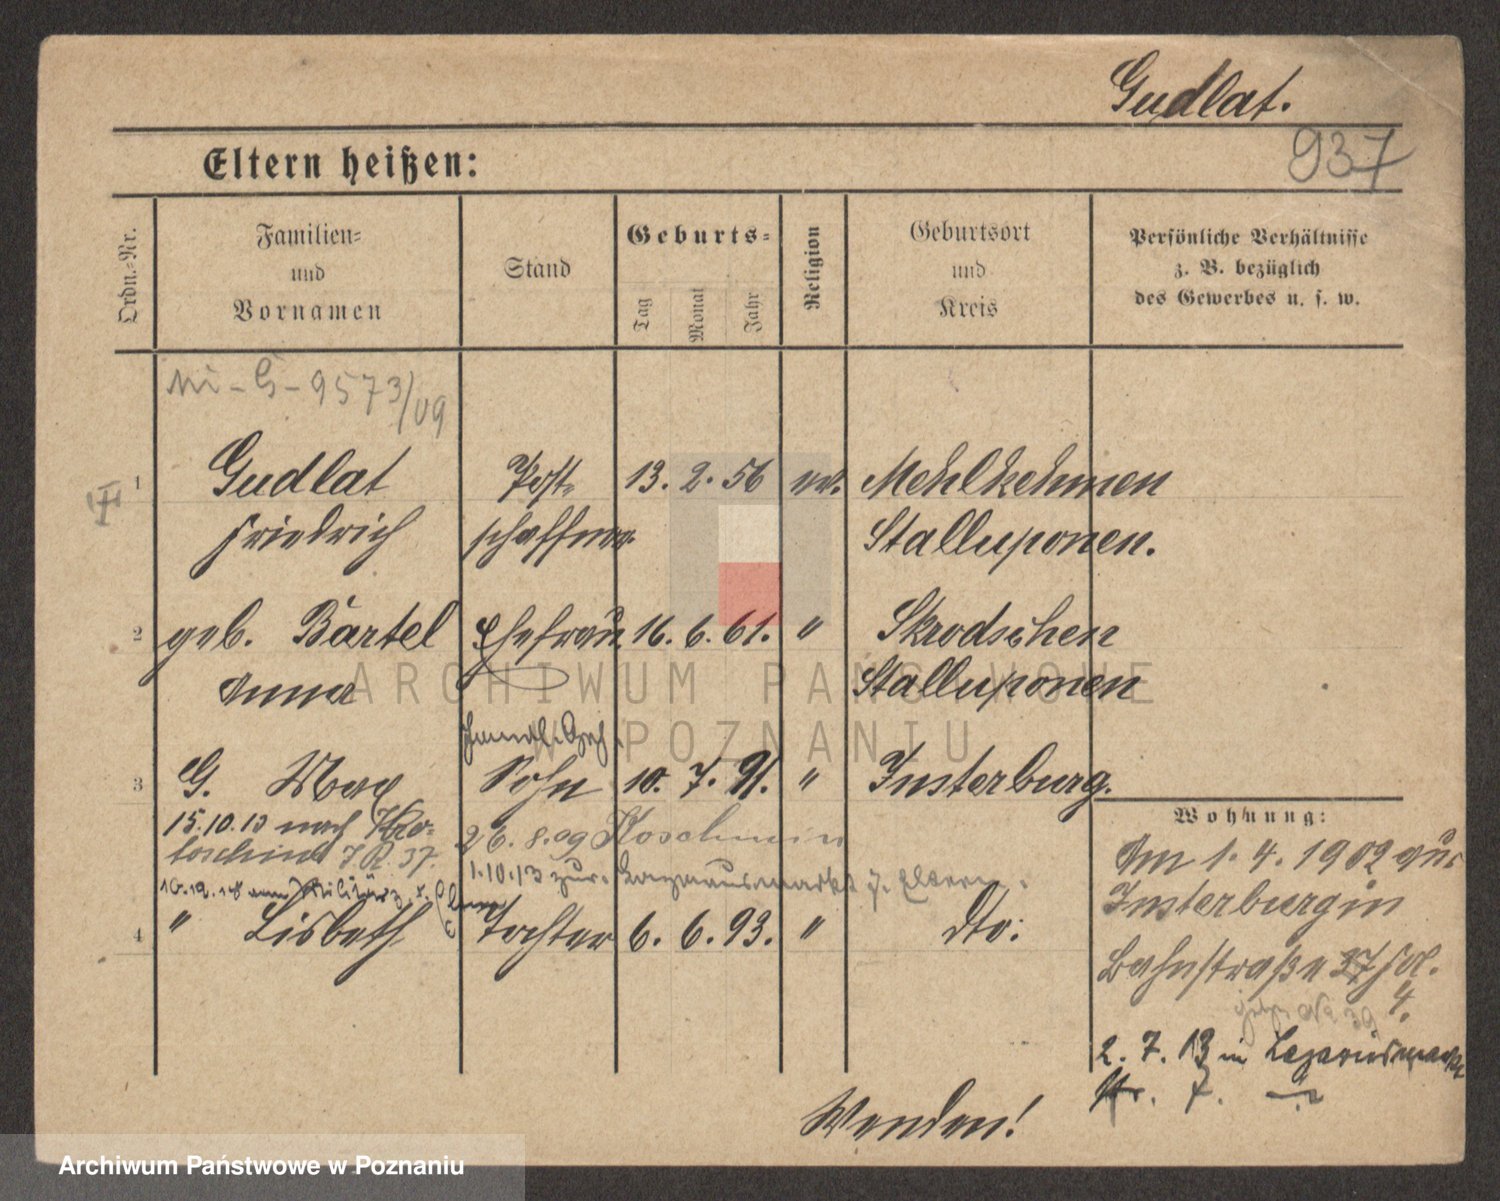 Gudlat.
937
Eltern heißen:
Ordn.-Nr.
Familien-
und
Vornamen
Stand
Geburts-
Tag
Monat
Jahr
Religion
Geburtsort
und
Kreis
Persönliche Verhältnisse
z. B. bezüglich
des Gewerbes u. s. w.
9573/09
1 Gudlat Post- 13. 2. 56 ev. Mehlkehmen
Friedrich schaffner Stalluponen.
2 geb. Bartel Ehefrau 16. 6. 61. " Skrodschen
Anna Stalluponen
3 G. Max Sohn 10. 7. 91. " Insterburg.
15.10.13 nach Kro-
toschin J.R. 37.
26.8.09 Koschmin
1.10.13 zur. z. Eltern.
4 " Lisbeth Tochter 6. 6. 93. " dto:
Wohnung:
Am 1.4.1902 aus
Insterburg in
Bahnstraße 37
4.
39
2. 7. 13 in Lazarusmarkt
Nr. 7.
Wenden!
ARCHIWUM PAŃSTWOWE
W POZNANIU
Archiwum Państwowe w Poznaniu